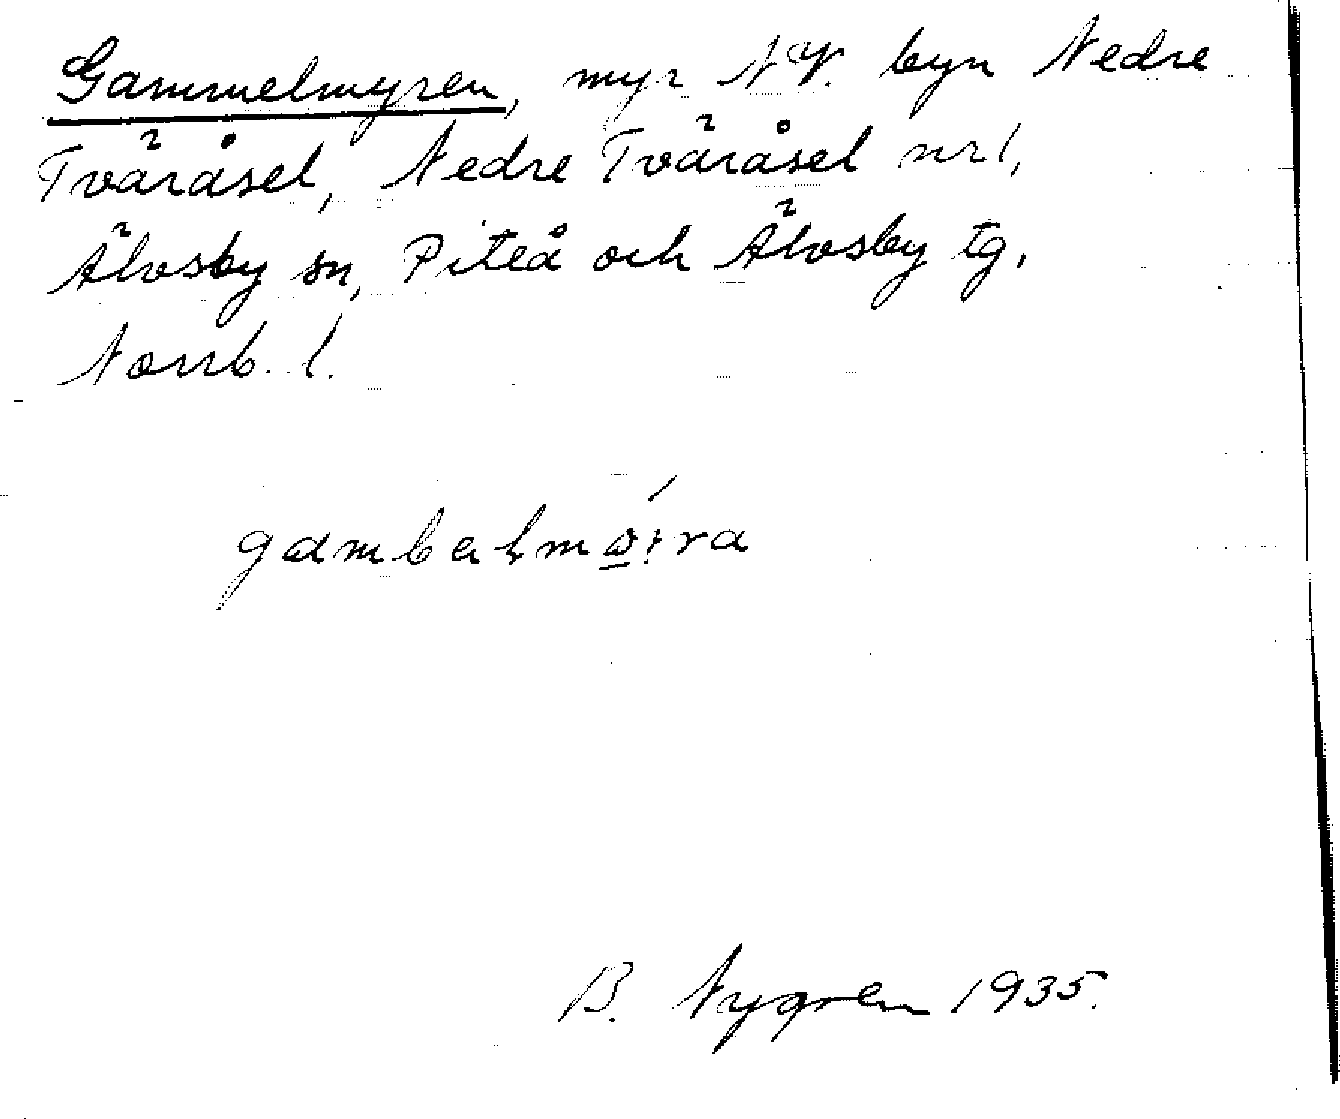 Gammelmyren, myr NV. byn Nedre
Tväråsel, Nedre Tväråsel nr 1,
Älvsby sn, Piteå och Älvsby tg,
Norrb. l.
B. Nygren 1935.